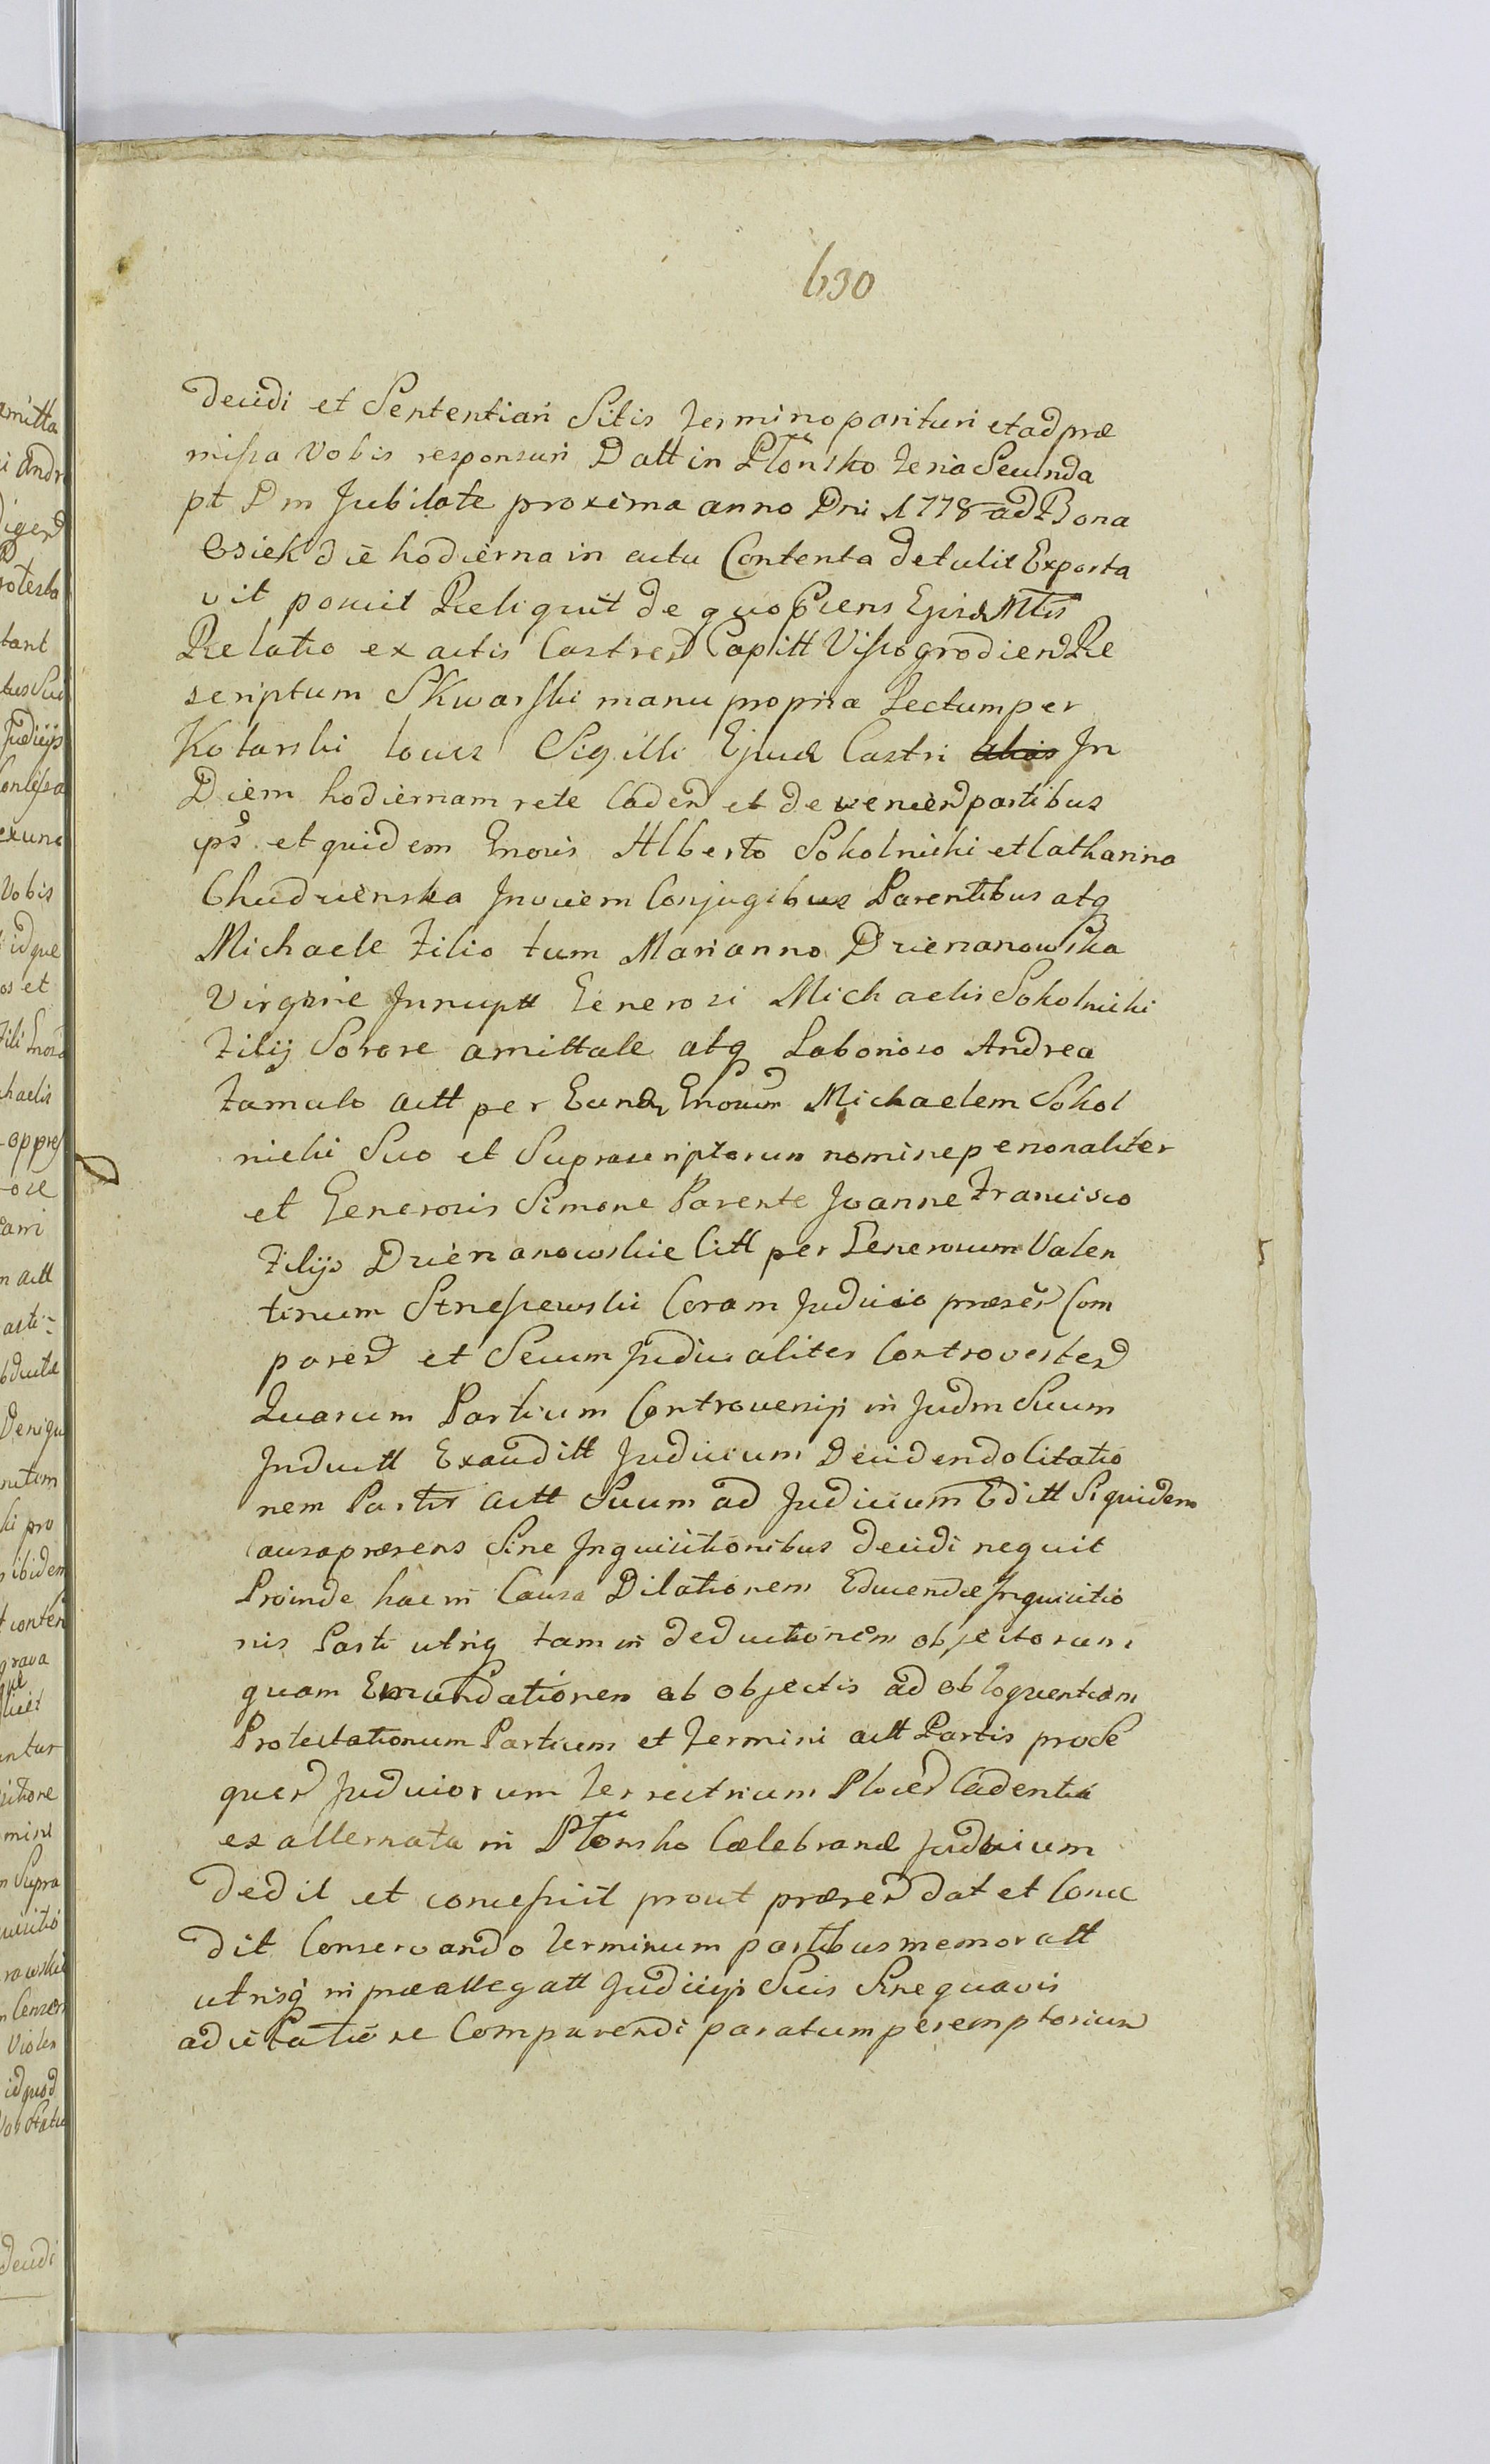 630
decidi et Sententiari Sitis termino parituri et ad præ
missa Vobis responsuri Datt in Płońsko feria Secunda
pt Dm Jubilate proxima anno Dni 1778 ad Bona
Osiek die hodierna in actu Contenta detulit Exporta
vit posuit Reliquit de quo Ejusd
Relatio ex actis Castren Capitt Vissogrodien Re
scriptum Skwarski manu propria Lectum per
Kotarski locus Sigilli Ejusd Castri In
Diem hodiernam rete Caden et devenien partibus
ips et quidem Gnosis Alberto Sokolnicki et Catharina
Chudzienska Invicem Conjugibus Parentibus atq
Michaele Filio tum Marianna Dzierzanowska
Virgine Innuptt Generosi Michaelis Sokolnicki
Filij Sorore amittale atq Laborioso Andrea
Famulo actt per Eund Gnosum Michaelem Sokol
nicki Suo et Suprascriptorum nomine personaliter
et Generosis Simone Parente Joanne Francisco
Filijs Dzierzanowskie Citt per Generosum Valen
tinum Strzeszewski Coram Judicio præsen Com
paren et Secum Judicialiter Controverten
Quarum Partium Controversijs in Judm Suum
Inductt Exauditt Judicium Decidendo Citatio
nem Partis actt Suum ad Judicium Editt Siquidem
Causa præsens Sine Inquisitionibus decidi nequit
Proinde hac in Causa Dilationem Educendæ Inquisitio
nis Parti utriq tam in deductionem objectorum
quam Emundationem ab objectis ad obloquentiam
Protestationum Partium et Termini actt Partis prose
quen Judiciorum Terrestrium Plocen Cadentia
ex alternata in Płońsko Cælebrand Judicium
dedit et concessit prout præsen dat et Conce
dit Conservando Terminum partibus memoratt
utrisq in præallegatt Judicijs Suis Sine quavis
adcitatione Comparendi paratum peremptorium